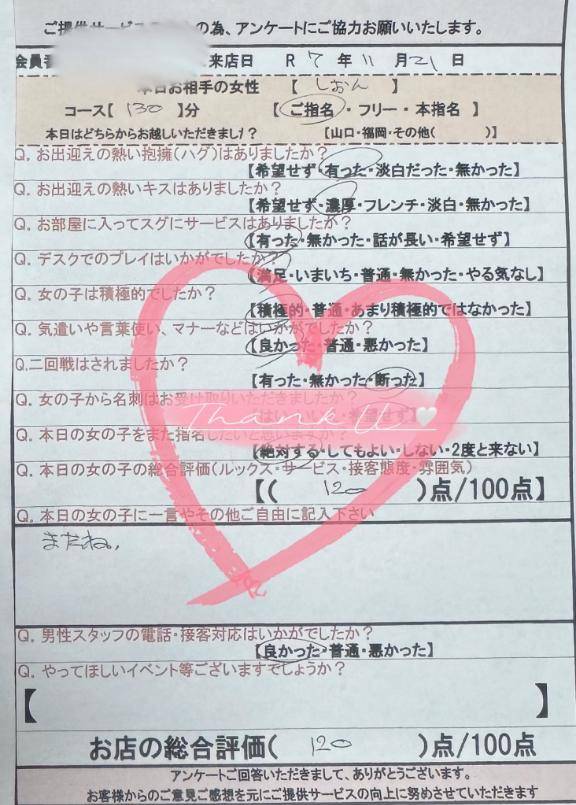 ご提供サービス の為、アンケートにご協力お願いいたします。
会員 来店日 R 7 年 11 月 21 日
本日お相手の女性 【 しおん 】
コース【 130 】分 【 ご指名 ・ フリー ・ 本指名 】
本日はどちらからお越しいただきました? 【山口・福岡・その他( )】
Q. お出迎えの熱い抱擁(ハグ)はありましたか?
【希望せず・有った・淡白だった・無かった】
Q. お出迎えの熱いキスはありましたか?
【希望せず・濃厚・フレンチ・淡白・無かった】
Q. お部屋に入ってスグにサービスはありましたか?
【有った・無かった・話が長い・希望せず】
Q. デスクでのプレイはいかがでしたか?
【満足・いまいち・普通・無かった・やる気なし】
Q. 女の子は積極的でしたか?
【積極的・普通・あまり積極的ではなかった】
Q. 気遣いや言葉使い、マナーなどはいかがでしたか?
【良かった・普通・悪かった】
Q.二回戦はされましたか?
【有った・無かった・断った】
Q. 女の子から名刺はお受け取りいただきましたか?
【はい・いいえ・希望せず】
Thank U
Q. 本日の女の子をまた指名したいと思いますか?
【絶対する・してもよい・しない・2度と来ない】
Q. 本日の女の子の総合評価(ルックス・サービス・接客態度・雰囲気)
【( 120 )点/100点】
Q. 本日の女の子に一言やその他ご自由に記入下さい
またね。
Q. 男性スタッフの電話・接客対応はいかがでしたか?
【良かった・普通・悪かった】
Q. やってほしいイベント等ございますでしょうか?
【 】
お店の総合評価( 120 )点/100点
アンケートご回答いただきまして、ありがとうございます。
お客様からのご意見ご感想を元にご提供サービスの向上に努めさせていただきます